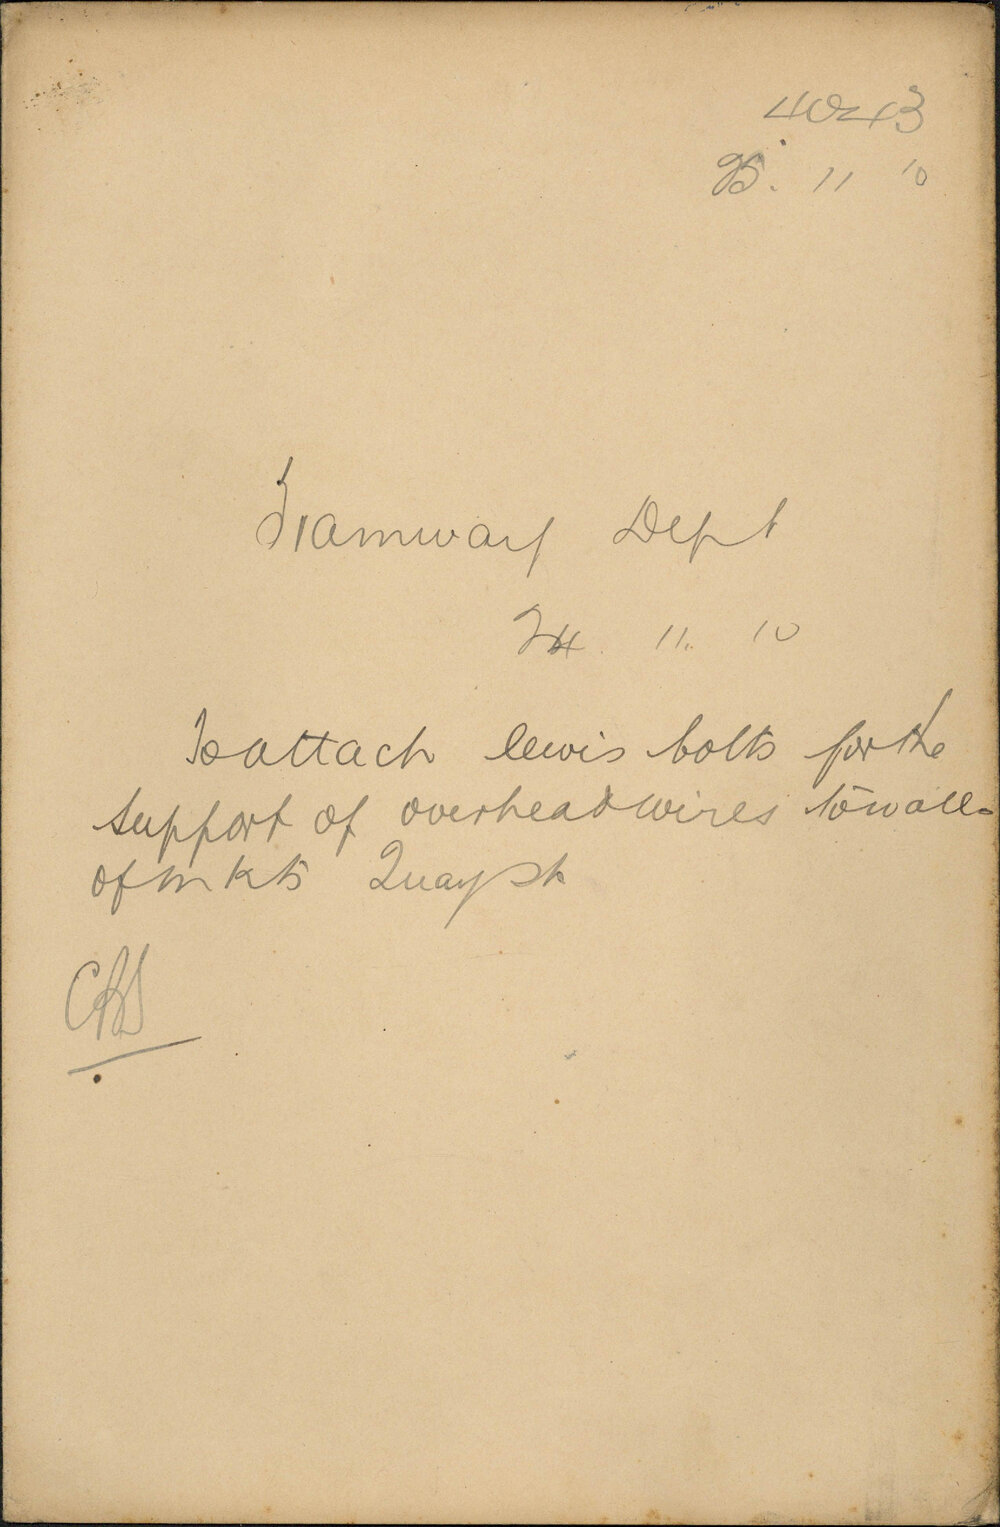 4043
25. 11 10
Tramway Dept
24. 11. 10
To attach lewis bolts for the
support of overhead wires to walls
of mkts Quay St